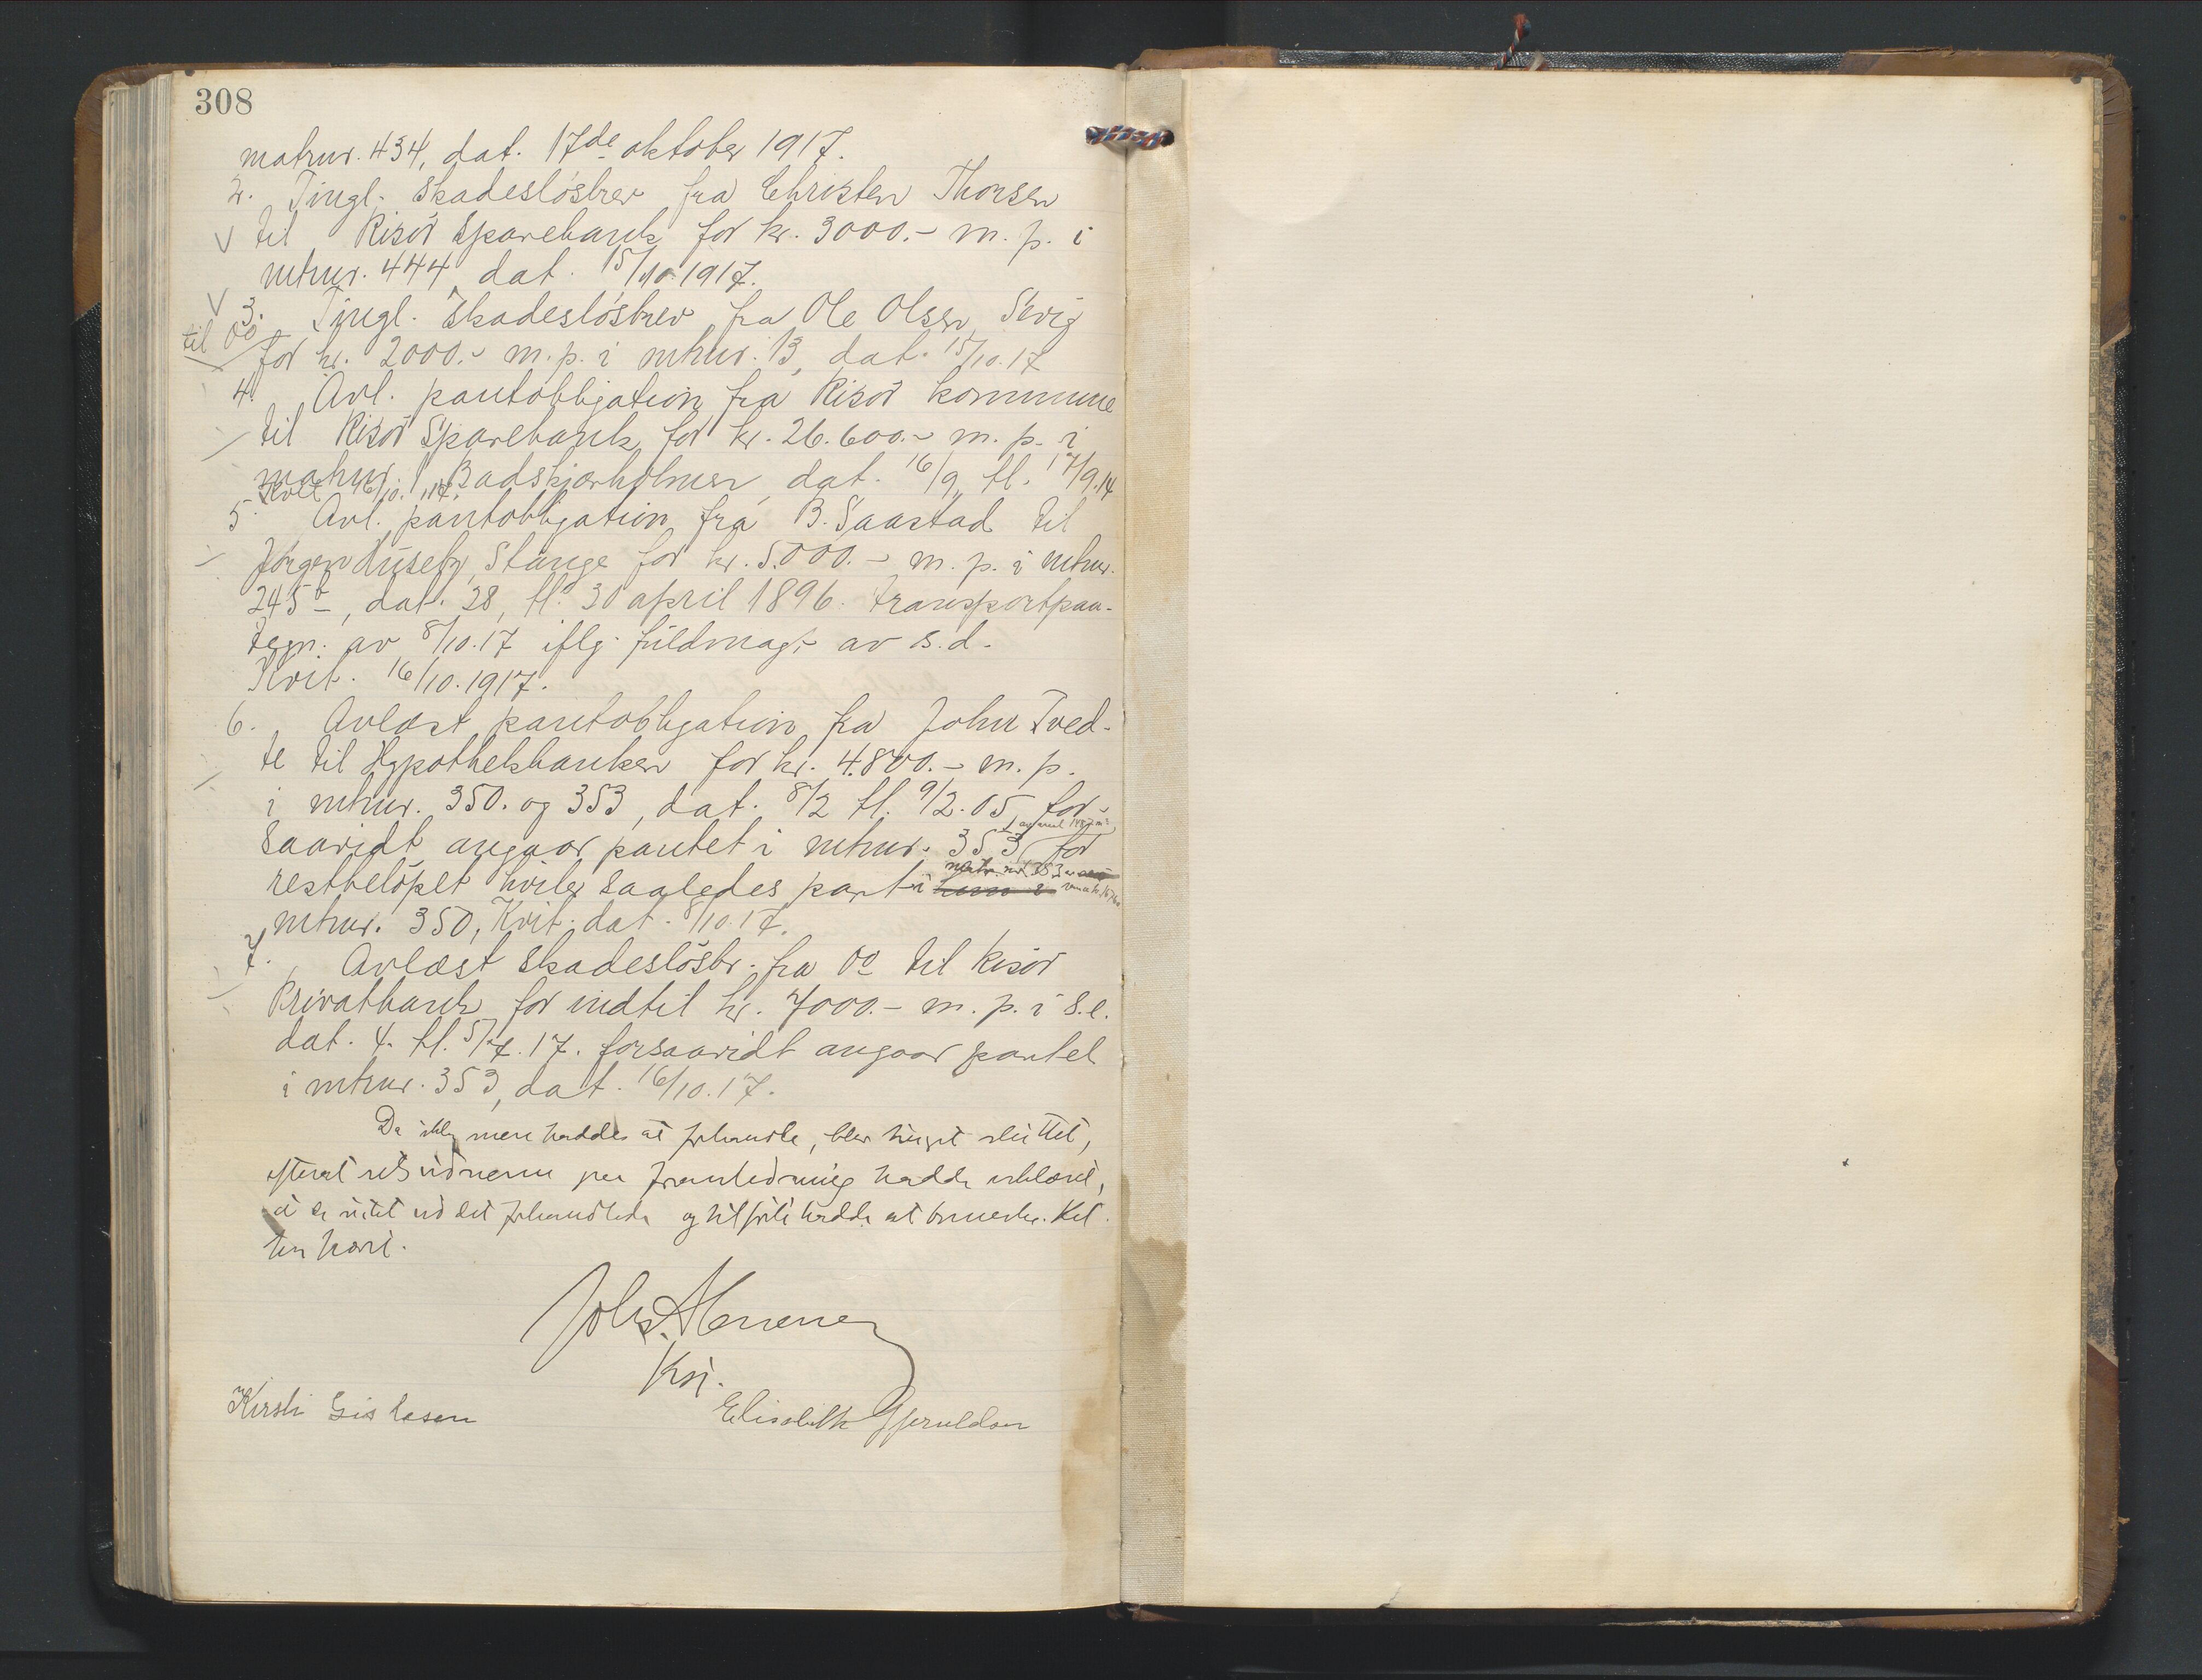 308
matrnr. 434, dat. 17de oktober 1917.
2. Tingl. Skadesløsbrev fra Christen Thorsen
til Risør Sparebank for kr. 3000.- m. p. i
mtrnr. 444 dat. 15/10 1917.
3. Tingl. Skadesløsbrev fra Ole Olsen,
til do
for kr. 2000.- m. p. i mtrnr. 13, dat. 15/10.17
4. Avl. pantobligation fra Risør kommune
til Risør Sparebank for kr. 26.600.- m. p. i
matrnr. 1, Badskjærholmen, dat. 16/9, tl. 17/9.14
Kvit. 16/10.17.
5. Avl. pantobligation fra B. Saastad til
Jørgen Huseby, Stange for kr. 5.000.- m. p. i mtrnr.
245, dat. 28, tl. 30 april 1896. Transportpaa-
tegn. av 8/10.17 iflg. fuldmagt av s.d.
Kvit. 16/10.1917.
6. Avlæst pantobligation fra John Tved-
te til Hypothekbanken for kr. 4.800.- m. p.
i mtrnr. 350. og 353, dat. 8/2 tl. 9/2.05, for-
saavidt angaar pantet i mtrnr. 353, for
restbeløpet hviler saaledes pant i
matr. nr. 353
mtrnr. 350, Kvit. dat. 8/10.17.
7. Avlæst skadesløsbr. fra do til Risør
Privatbank for indtil kr. 7000.- m. p. i s.e.
dat. 4. tl. 5/7.17. forsaavidt angaar pantet
i mtrnr. 353, dat. 16/10.17.
Da ikke mere haddes at behandle, blev tinget sluttet,
efterat retsvidnerne paa foranledning hadde erklæret,
at de intet ved det behandlede og tilførte hadde at bemerke. Ret-
ten hævet.
Kst.
Kirsti Gislesen Elisabeth Gjeruldsen